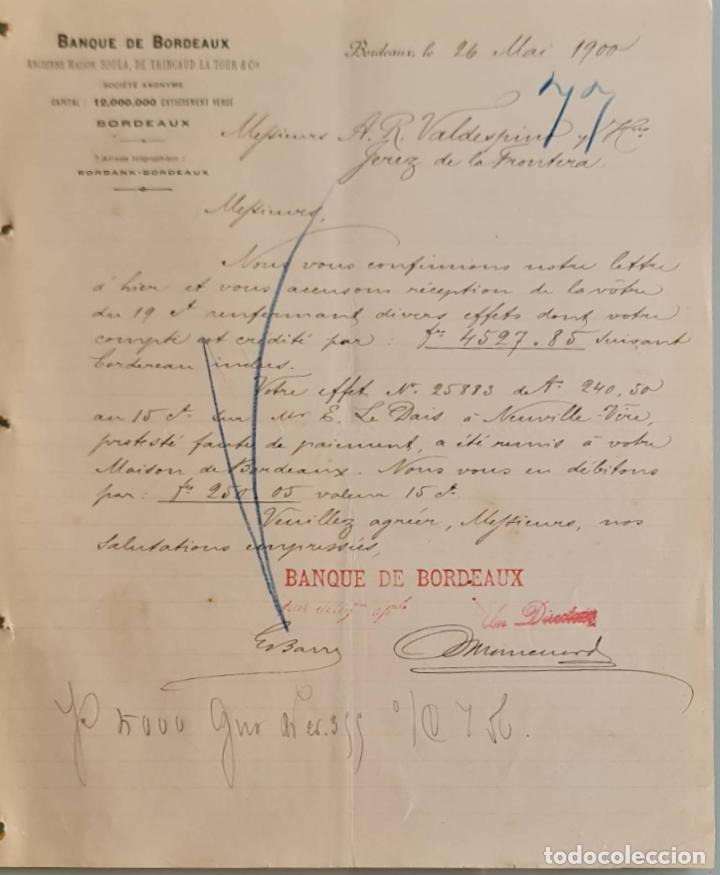 BANQUE DE BORDEAUX
ANCIENNE MAISON SOULA, DE TRINCAUD LA TOUR & Cie
SOCIÉTÉ ANONYME
CAPITAL : 12,000,000 ENTIÈREMENT VERSÉ
BORDEAUX
Adresse télégraphique :
BORBANK-BORDEAUX
Bordeaux, le 26 Mai 1900
77
Messieurs A. R. Valdespino y Hno
Jerez de la Frontera.
Messieurs,
Nous vous confirmons notre lettre
d'hier et vous accusons réception de la vôtre
du 19 ct renfermant divers effets dont votre
compte est crédité par : frs 4527.85 suivant
bordereau inclus.
Votre effet No 25883 de frs 240,50
au 15 ct sur Mr E. Le Dais à Neuville-Vire,
protesté faute de paiement, a été remis à votre
Maison de Bordeaux. Nous vous en débitons
par : frs 250.05 valeur 15 ct.
Veuillez agréer, Messieurs, nos
salutations empressées,
BANQUE DE BORDEAUX
Un Directeur
todocoleccion.net